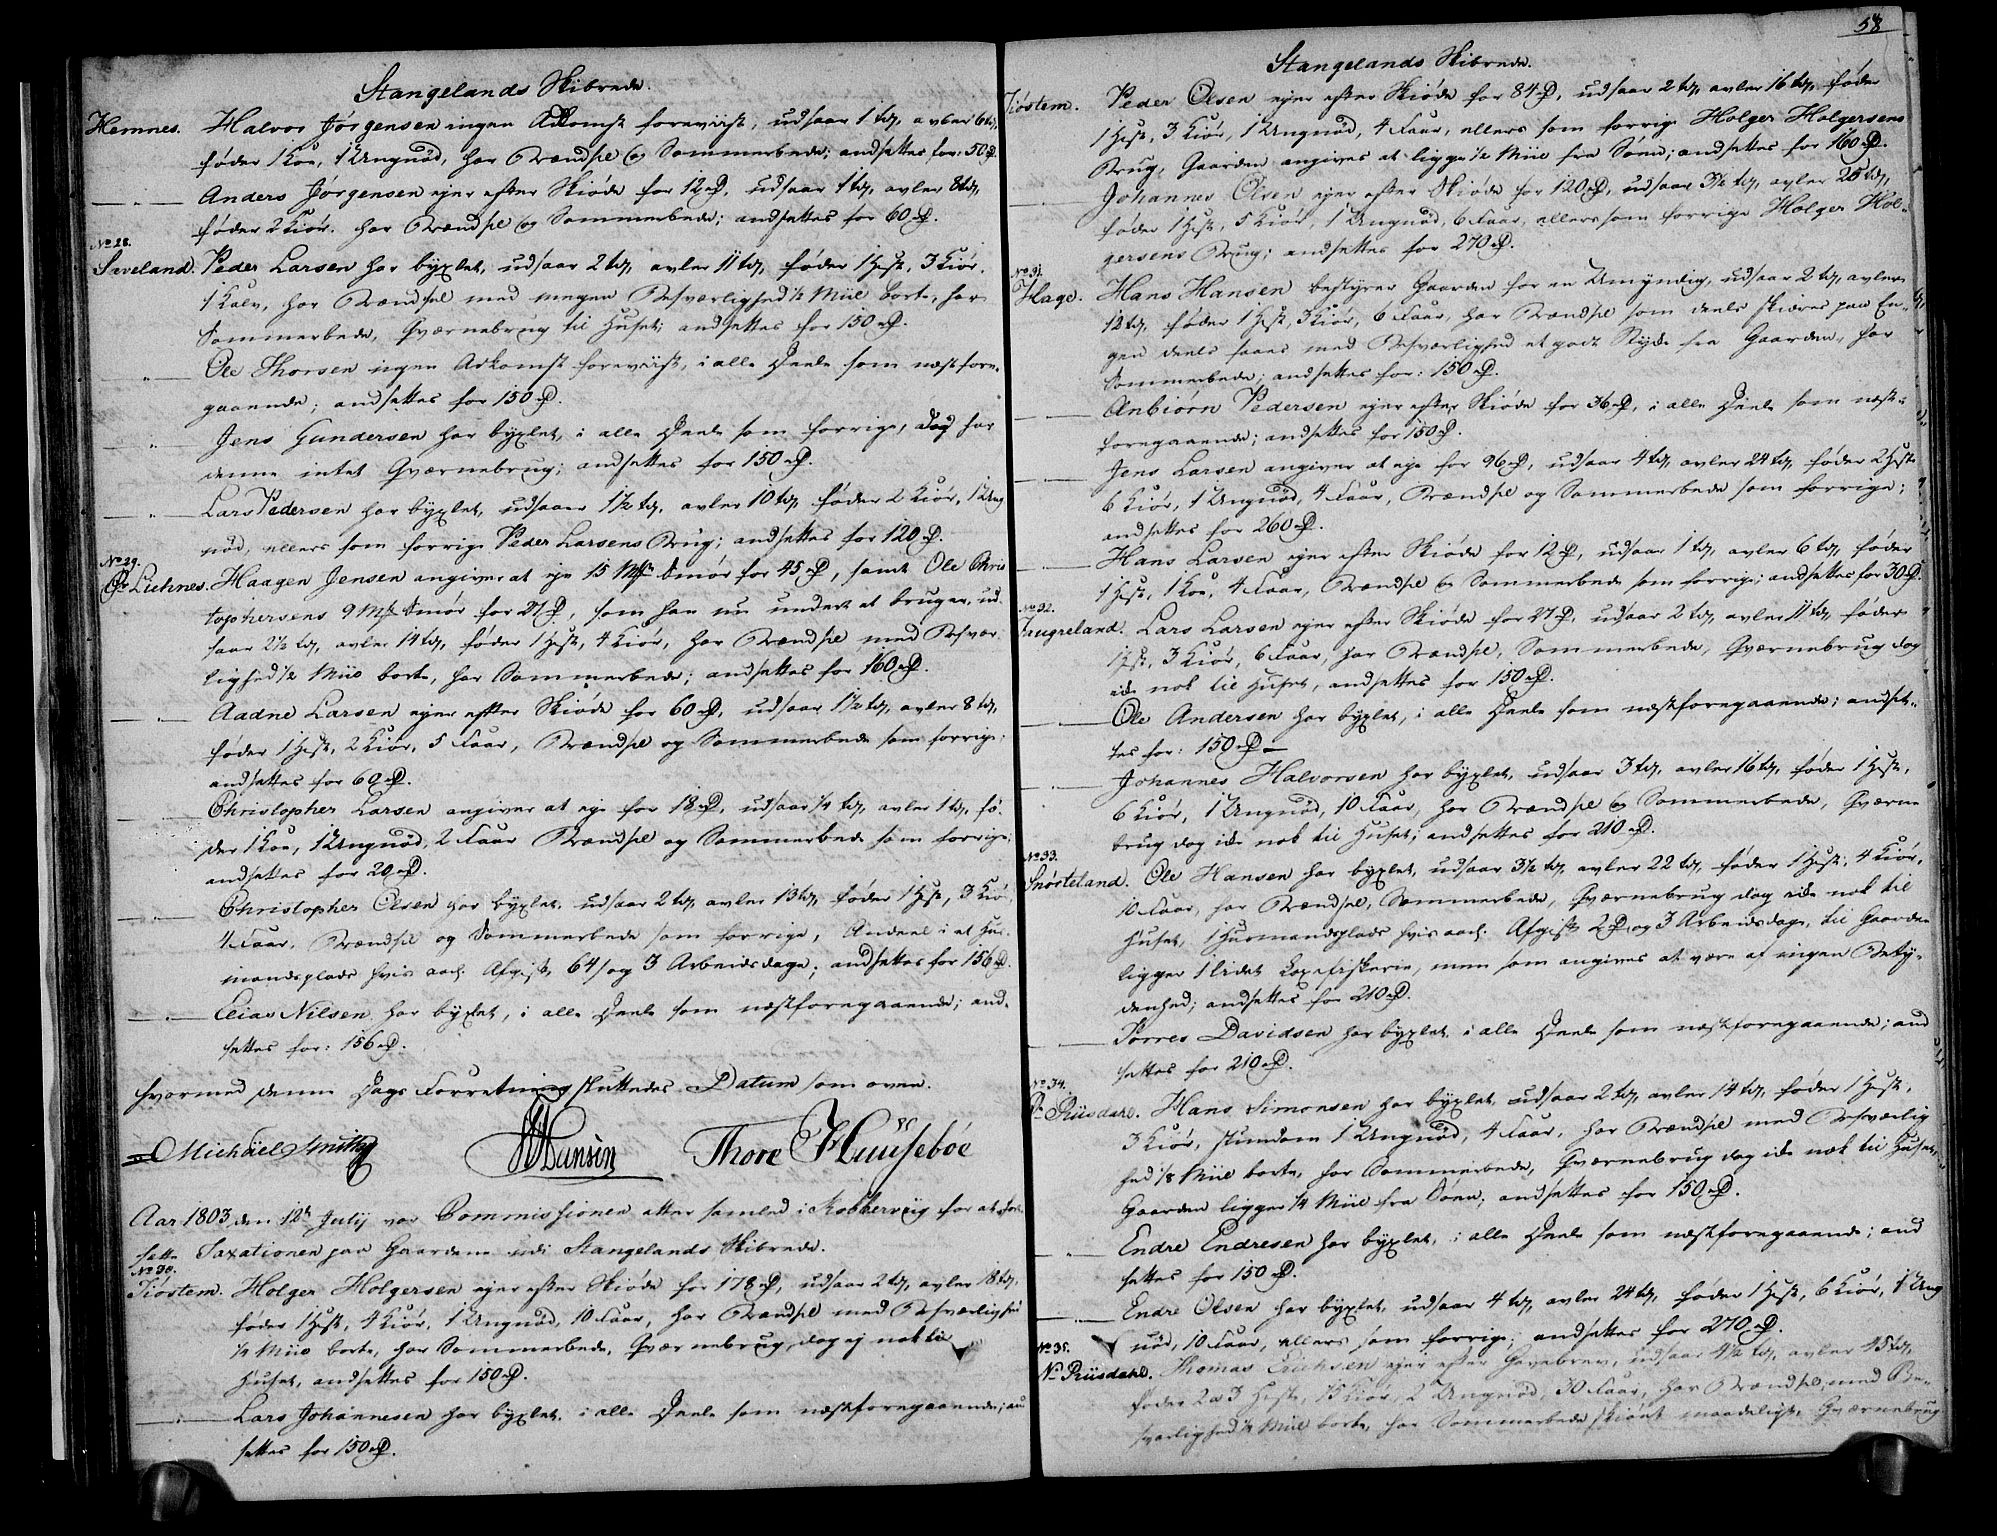 Stangelands Skibrede.
Hemnes. Halvor Jørgensen ingen Adkomst foreviist, udsaar 1 td, avler 6 td,
føder 1 Koe, 1 Ungnød, har Brændsel og Sommerbede; ansettes for: 50 rd.
— „ — Anders Jørgensen ejer efter Skiøde for 12 rd, udsaar 1 td, avler 8 td,
føder 2 Kiør. har Brændsel og Sommerbede; ansettes for 60 rd.
No 28.
Sæveland. Peder Larsen har byxlet, udsaar 2 td, avler 11 td, føder 1 Hest, 3 Kiør,
1 Kalv, har Brændsel med megen Besværlighed ½ Miil borte, har
Sommerbede, Qværnebrug til Huset; ansettes for 150 rd.
— „ — Ole Thorsen ingen Adkomst foreviist, i alle Deele som næstfore-
gaaende; ansettes for 150 rd.
„ Jens Gundersen har byxlet, i alle Deele som forrige, dog har
denne intet Qværnebrug; ansettes for 150 rd.
— „ — Lars Pedersen har byxlet, udsaaer 1½ td, avler 10 td, føder 2 Kiør, 1 Ung
nød, ellers som forrige Peder Larsens Brug; ansettes for 120 rd.
No 29.
Liehnes. Haagen Jensen angiver at eje 15 Mrk Smør for 45 rd, samt Ole Chris
tophersens 9 Mrk Smør for 27 rd, som han nu underet at bruger, ud-
saar 2½ td, avler 14 td, føder 1 Hest, 4 Kiør, har Brændsel med Besvær
lighed ½ Miil borte, har Sommerbede; ansettes for 160 rd.
— „ — Aadne Larsen ejer efter Skiøde for 60 rd, udsaar 1½ td, avler 8 td,
føder 1 Hest, 2 Kiør, 5 Faar, Brændsel og Sommerbede som forrige;
ansettes for 60 rd.
— „ — Christopher Larsen angiver at eje for 18 rd, udsaar ¼ td, avler 1 td, fø-
der 1 Koe, 1 Ungnød, 2 Faar Brændsel og Sommerbede som forrige;
ansettes for 20 rd.
— „ — Christopher Olsen har byxlet, udsaar 2 td, avler 13 td, føder 1 Hest, 3 Kiør,
4 Faar, Brændsel og Sommerbede som forrige, Andeel i et Huus-
mandsplads hvis aarl. Afgift 64 s og 3 Arbeidsdage; ansettes for 156 rd.
— „ — Elias Nilsen har byxlet, i alle Deele som næstforegaaende; an-
settes for: 156 rd.
hvormed denne Dags Forretning sluttedes Datum som oven.
Michäel Smith Hansen Thore Huusebøe
Aar 1803, den 12te July var Commissionen atter samled i Kobberviig for at fort-
sette Taxationen paa Gaardene udi Stangelands Skibrede.
No 30.
Tiøstem. Holger Holgersen ejer efter Skiøde for 178 rd, udsaar 2 td, avler 18 td,
føder 1 Hest, 4 Kiør, 1 Ungnød, 10 Faar, har Brændsel med Besværlighed
¼ Miil borte, har Sommerbede, Qværnebrug, dog ej nok til
Huset, ansettes for 150 rd.
— „ — Lars Johannesen har byxlet, i alle Deele som næstforegaaende; an
settes for 150 rd.
58
Stangelands Skibrede.
Tiøstem. Peder Olsen ejer efter Skiøde for 84 rd, udsaar 2 td, avler 16 td, føder
1 Hest, 3 Kiør, 1 Ungnød, 4 Faar, ellers som forrige Holger Holgersens
Brug, Gaarden angives at ligge ½ Miil fra Søen; ansettes for 160 rd.
— „ — Johannes Olsen ejer efter Skiøde for 120 rd, udsaar 3½ td, avler 25 td,
føder 1 Hest, 5 Kiør, 1 Ungnød, 6 Faar, ellers som forrige Holger Hol-
gersens Brug; ansettes for 270 rd.
No 31.
Hage. Hans Hansen bestyrer Gaarden for en Umyndig, udsaar 2 td, avler
12 td, føder 1 Hest, 3 Kiør, 6 Faar, har Brændsel som deels skiæres paa En-
gen deels faaes med Besværlighed et godt Stykke fra Gaarden, har
Sommerbede; ansettes for: 150 rd.
— „ — Anbiørn Pedersen ejer efter Skiøde for 36 rd, i alle Deele som næst-
foregaaende; ansettes for 150 rd.
— „ — Jens Larsen angiver at eje for 96 rd, udsaar 4 td, avler 24 td, føder 2 Heste
6 Kiør, 1 Ungnød, 4 Faar, Brændsel og Sommerbede som forrige;
ansettes for 260 rd.
— „ — Hans Larsen ejer efter Skiøde for 12 rd, udsaar 1 td, avler 6 td, føder
1 Hest, 1 Koe, 4 Faar, Brændsel og Sommerbede som forrige; ansettes for 30 rd.
No 32.
Faugreland. Lars Larsen ejer efter Skiøde for 27 rd, udsaar 2 td, avler 11 td, føder
1 Hest, 3 Kiør, 6 Faar, har Brændsel, Sommerbede, Qværnebrug dog
ide nok til Huset, ansettes for 150 rd.
— „ — Ole Andersen har byxlet, i alle Deele som næstforegaaende; anset-
tes for: 150 rd —
— „ — Johannes Halvorsen har byxlet, udsaar 3 td, avler 16 td, føder 1 Hest,
6 Kiør, 1 Ungnød, 10 Faar, har Brændsel og Sommerbede, Qværne
brug dog ide nok til Huset; ansettes for 210 rd.
No 33.
Snørteland. Ole Hansen har byxlet, udsaar 3½ td, avler 22 td, føder 1 Hest, 4 Kiør,
10 Faar, har Brændsel, Sommerbede, Qværnebrug dog ide nok til
Huset, 1 Huusmandsplads hvis aarl. Afgift 2 rd og 3 Arbeidsdage, til Gaarden
ligger 1 lidet Laxefiskerie, men som angives at være af ingen Bety-
denhed; ansettes for 210 rd.
— „ — Torres Davidsen har byxlet, i alle Deele som næstforegaaende; an
settes for 210 rd.
No 34.
Riisdahl. Hans Simonsen har byxlet, udsaar 2 td, avler 14 td, føder 1 Hest,
3 Kiør, stundom 1 Ungnød, 4 Faar, har Brændsel med Besværlig
hed 1/8 Miil borte, har Sommerbede, Qværnebrug dog ide nok til Huset,
Gaarden ligger ¼ Miil fra Søen; ansettes for 150 rd.
— „ — Endre Endresen har byxlet, i alle Deele som næstforegaaende; an
settes for 150 rd.
— „ — Endre Olsen har byxlet, udsaar 4 td, avler 24 td, føder 1 Hest, 6 Kiør, 1 Ung
nød, 10 Faar, ellers som forrige; ansettes for 270 rd.
No 35.
N. Riisdahl. Thomas Erichsen ejer efter Gavebrev, udsaar 4½ td, avler 45 td,
føder 2 a 3 Heste, 15 Kiør, 2 Ungnød, 30 Faar, har Brændsel, med Be-
sværlighed ¼ Miil borte, har Sommerbede skiønt maadeligt, Qværnebrug